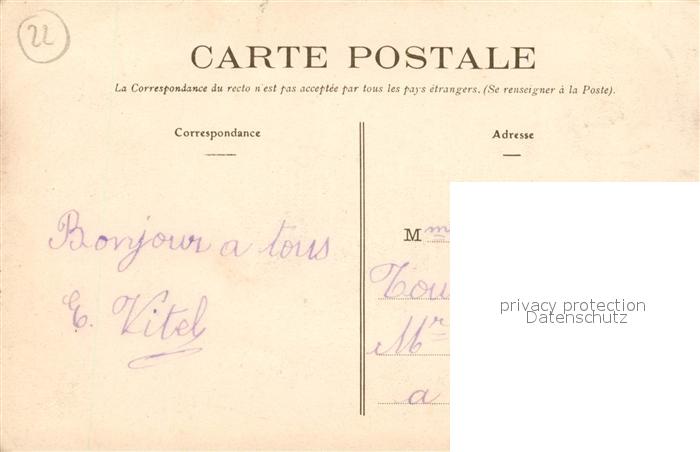 22
CARTE POSTALE
La Correspondance du recto n'est pas acceptée par tous les pays étrangers. (Se renseigner à la Poste).
Correspondance
Adresse
Bonjour a tous
E. Vitel
Mm
Tou
Mr
a
privacy protection
Datenschutz